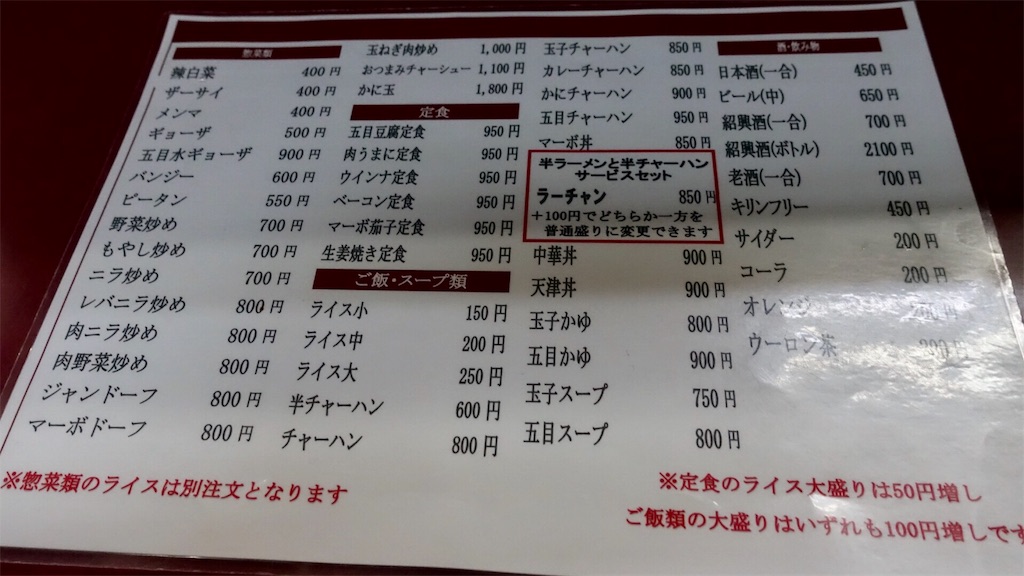 惣菜類
辣白菜 400円
ザーサイ 400円
メンマ 400円
ギョーザ 500円
五目水ギョーザ 900円
バンジー 600円
ピータン 550円
野菜炒め 700円
もやし炒め 700円
ニラ炒め 700円
レバニラ炒め 800円
肉ニラ炒め 800円
肉野菜炒め 800円
ジャンドーフ 800円
マーボドーフ 800円
玉ねぎ肉炒め 1,000円
おつまみチャーシュー 1,100円
かに玉 1,800円
定食
五目豆腐定食 950円
肉うまに定食 950円
ウインナ定食 950円
ベーコン定食 950円
マーボ茄子定食 950円
生姜焼き定食 950円
ご飯・スープ類
ライス小 150円
ライス中 200円
ライス大 250円
半チャーハン 600円
チャーハン 800円
玉子チャーハン 850円
カレーチャーハン 850円
かにチャーハン 900円
五目チャーハン 950円
マーボ丼 850円
半ラーメンと半チャーハン
サービスセット
ラーチャン 850円
+100円でどちらか一方を
普通盛りに変更できます
中華丼 900円
天津丼 900円
玉子かゆ 800円
五目かゆ 900円
玉子スープ 750円
五目スープ 800円
酒・飲み物
日本酒(一合) 450円
ビール(中) 650円
紹興酒(一合) 700円
紹興酒(ボトル) 2100円
老酒(一合) 700円
キリンフリー 450円
サイダー 200円
コーラ 200円
オレンジ
ウーロン茶 200円
※惣菜類のライスは別注文となります
※定食のライス大盛りは50円増し
ご飯類の大盛りはいずれも100円増しです